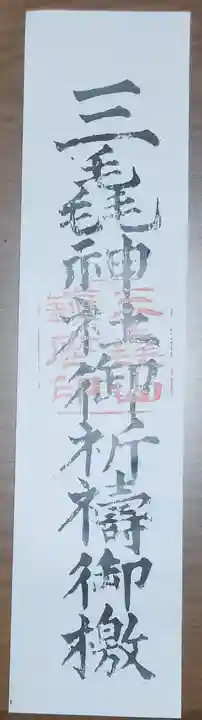 三毳神社御祈禱御檄